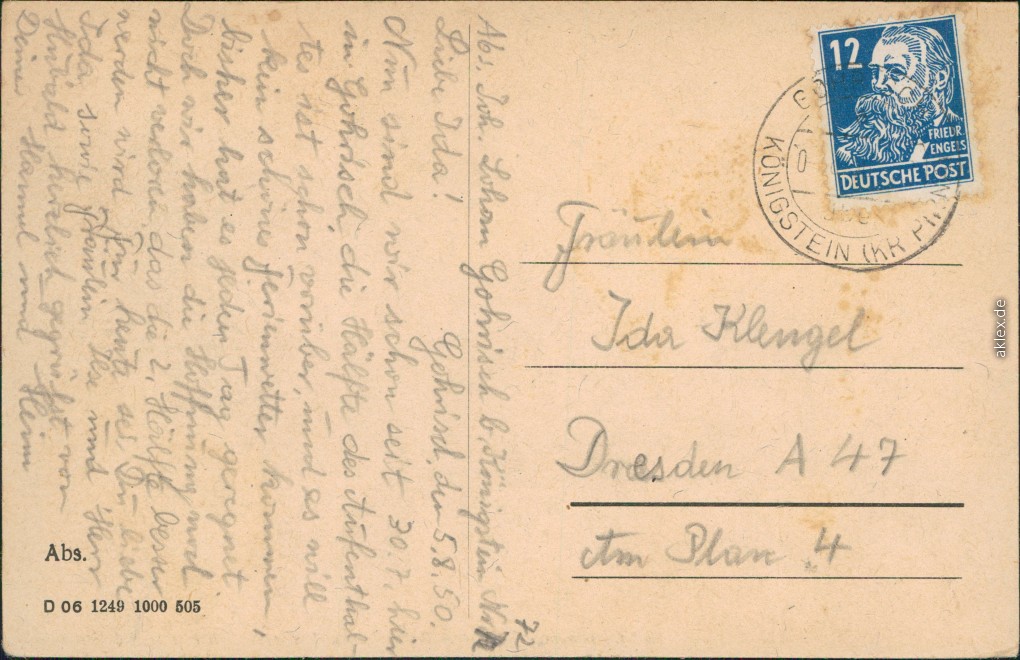 Abs. Joh. Gohrisch b. Königstein Nr.
72
Gohrisch, den 5.8.50.
Liebe Ida!
Nun sind wir schon seit 30.7. hier
in Gohrisch, die Hälfte des Aufenthal-
tes ist schon vorüber, und es will
kein schönes Ferienwetter kommen,
bisher hat es jeden Tag geregnet
Doch wir haben die Hoffnung
nicht verloren, das die 2. Hälfte besser
werden wird. Für heute sei Du liebe
Ida sowie Fräulein Ilse und Herr
herzlich gegrüßt von
Deine Hanni und Heini
12
FRIEDR
ENGELS
DEUTSCHE POST
KÖNIGSTEIN (KR PIRNA
Fräulein
Ida Klengel
Dresden A 47
Am Plan 4
Abs.
D 06 1249 1000 505
aklex.de